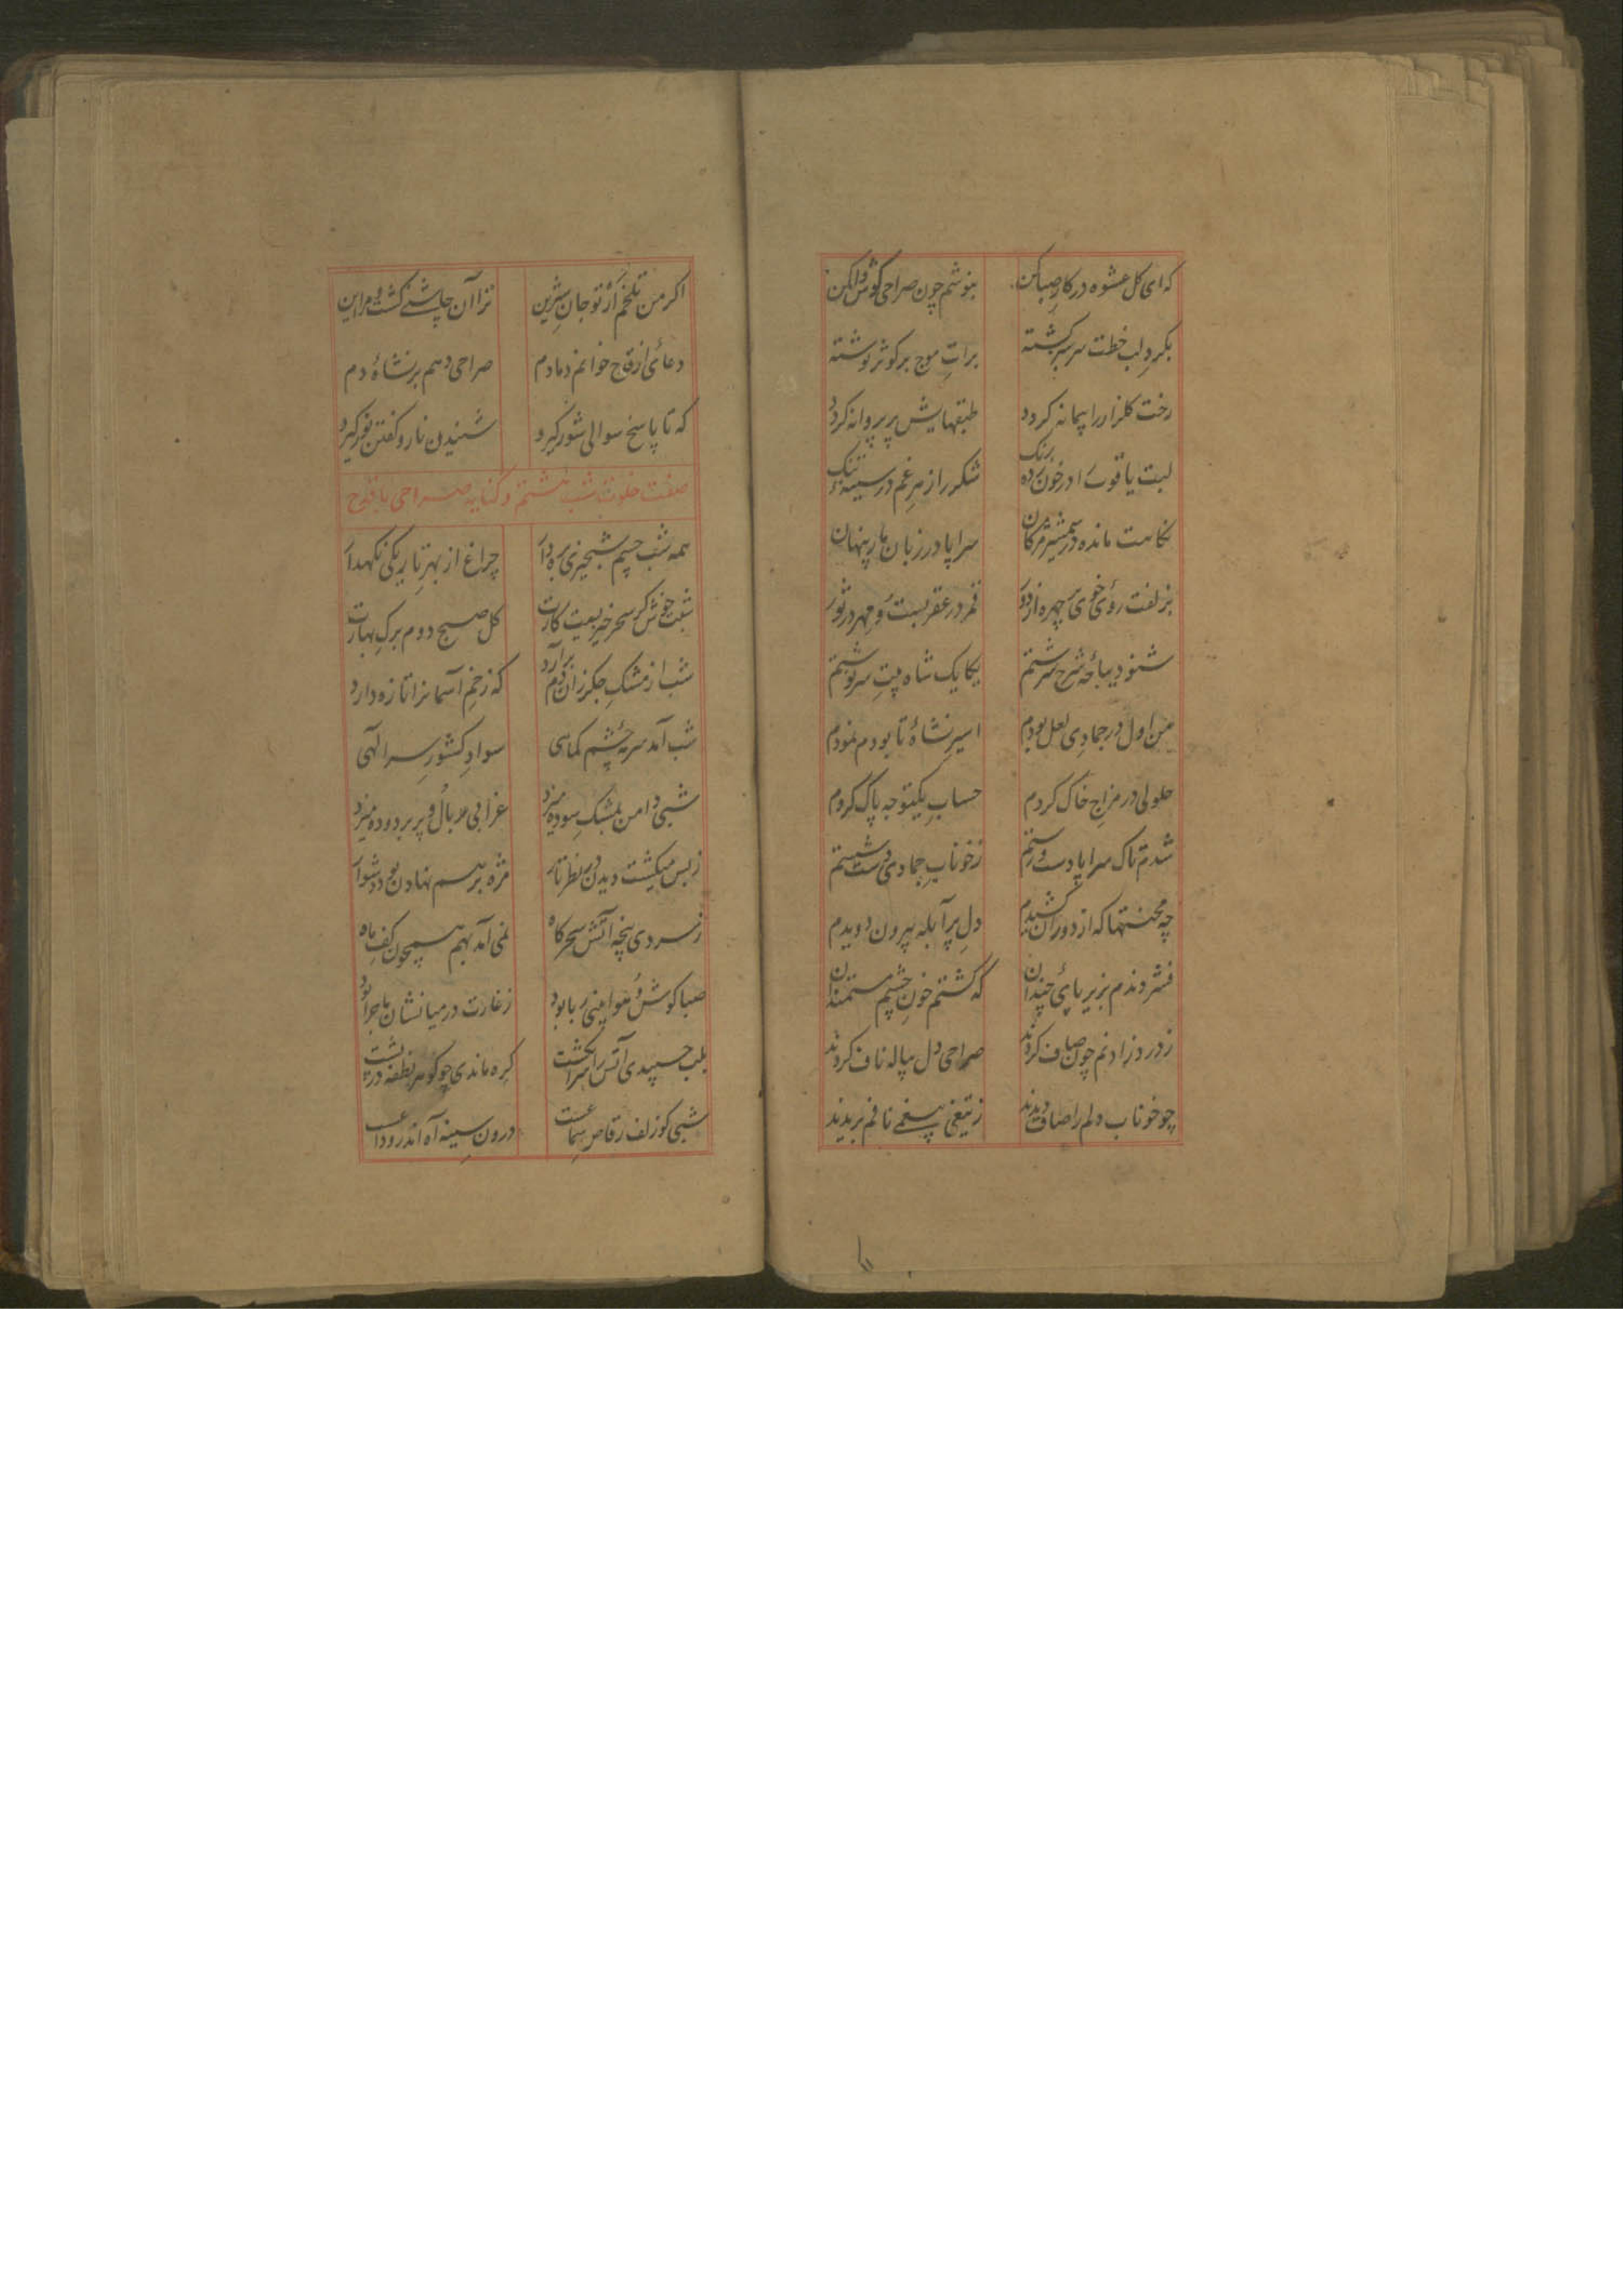 که ای کل عشوه در کار صبا کن بنوشم چون صراحی کوش وا کن
بکرد لب خطت سرسبز کشته برات موج بر کوثر نوشته
رخت کلزار را پیمانه کردد طبقهایش پر پروانه کردد
لبت یاقوت را در خون زده رنک شکر را زهر غم در سینه تنک
نکاهت مانده در شمشیر مژکان سراپا در زبان مار پنهان
بزلفت روی خوی چهره از دور قمر در عقربست و مهر در ثور
شنو دیباچه شرح سرشتم یکایک شاه بیت سرنوشتم
من اول در جمادی لعل بودم اسیر نشاهٔ تا بودم نمودم
حلولی در مزاج خاک کردم حساب یکتوجه پاک کردم
شدم تاک سراپا دست و رستم ز خوناب جمادی دست شستم
چه محنتها که از دوران کشیدم دل پر آبله بیرون دویدم
فشردندم بزیر پای چندان که کشتم خون چشم مستمندان
ز درد زادنم چون صاف کردند صراحی دل پیاله ناف کردند
چو خوناب دلم را صاف دیدند ز تیغ نافم بریدند
اکر من تلخم از تو جان شیرین ترا آن چاشنی کشت و مرا این
دعائی از قدح خوانم دمادم صراحی دهم بر نشاهٔ دم
که تا پاسخ سوالی شور کیرد شنیدن نار و کفتن نور کیرد
صفت خلوت شب هشتم و کنایه صراحی با قدح
همه شب چشم شبخیزی بره دار چراغ از بهر تاریکی نکهدار
شبت خوش کر سحرخیزیست کارت کل صبح دوم برک بهارت
شب از مشک جکر زان دم برآرد که زخم آسمانرا تازه دارد
شب آمد سرمهٔ چشم کماهی سواد کشور سر الهی
شبی دامن بمشک سوده میزد غرابی بال و پر بر دوده میزد
ز بس میکشت دیدن در نظر تار مژه بر هم نهادن بود دشوار
ز سردی پنجه آتش سحرکاه نمی آمد بهم همچون کف ماه
صبا کوش و هوا بینی ربا بود ز غارت در میانشان ماجرا بود
بلب چسپیدی آتش را انکشت کره ماندی چو کوهر نطفه در پشت
شبی کو زلف رقاص سماعست درون سینه آه اندر وداعست